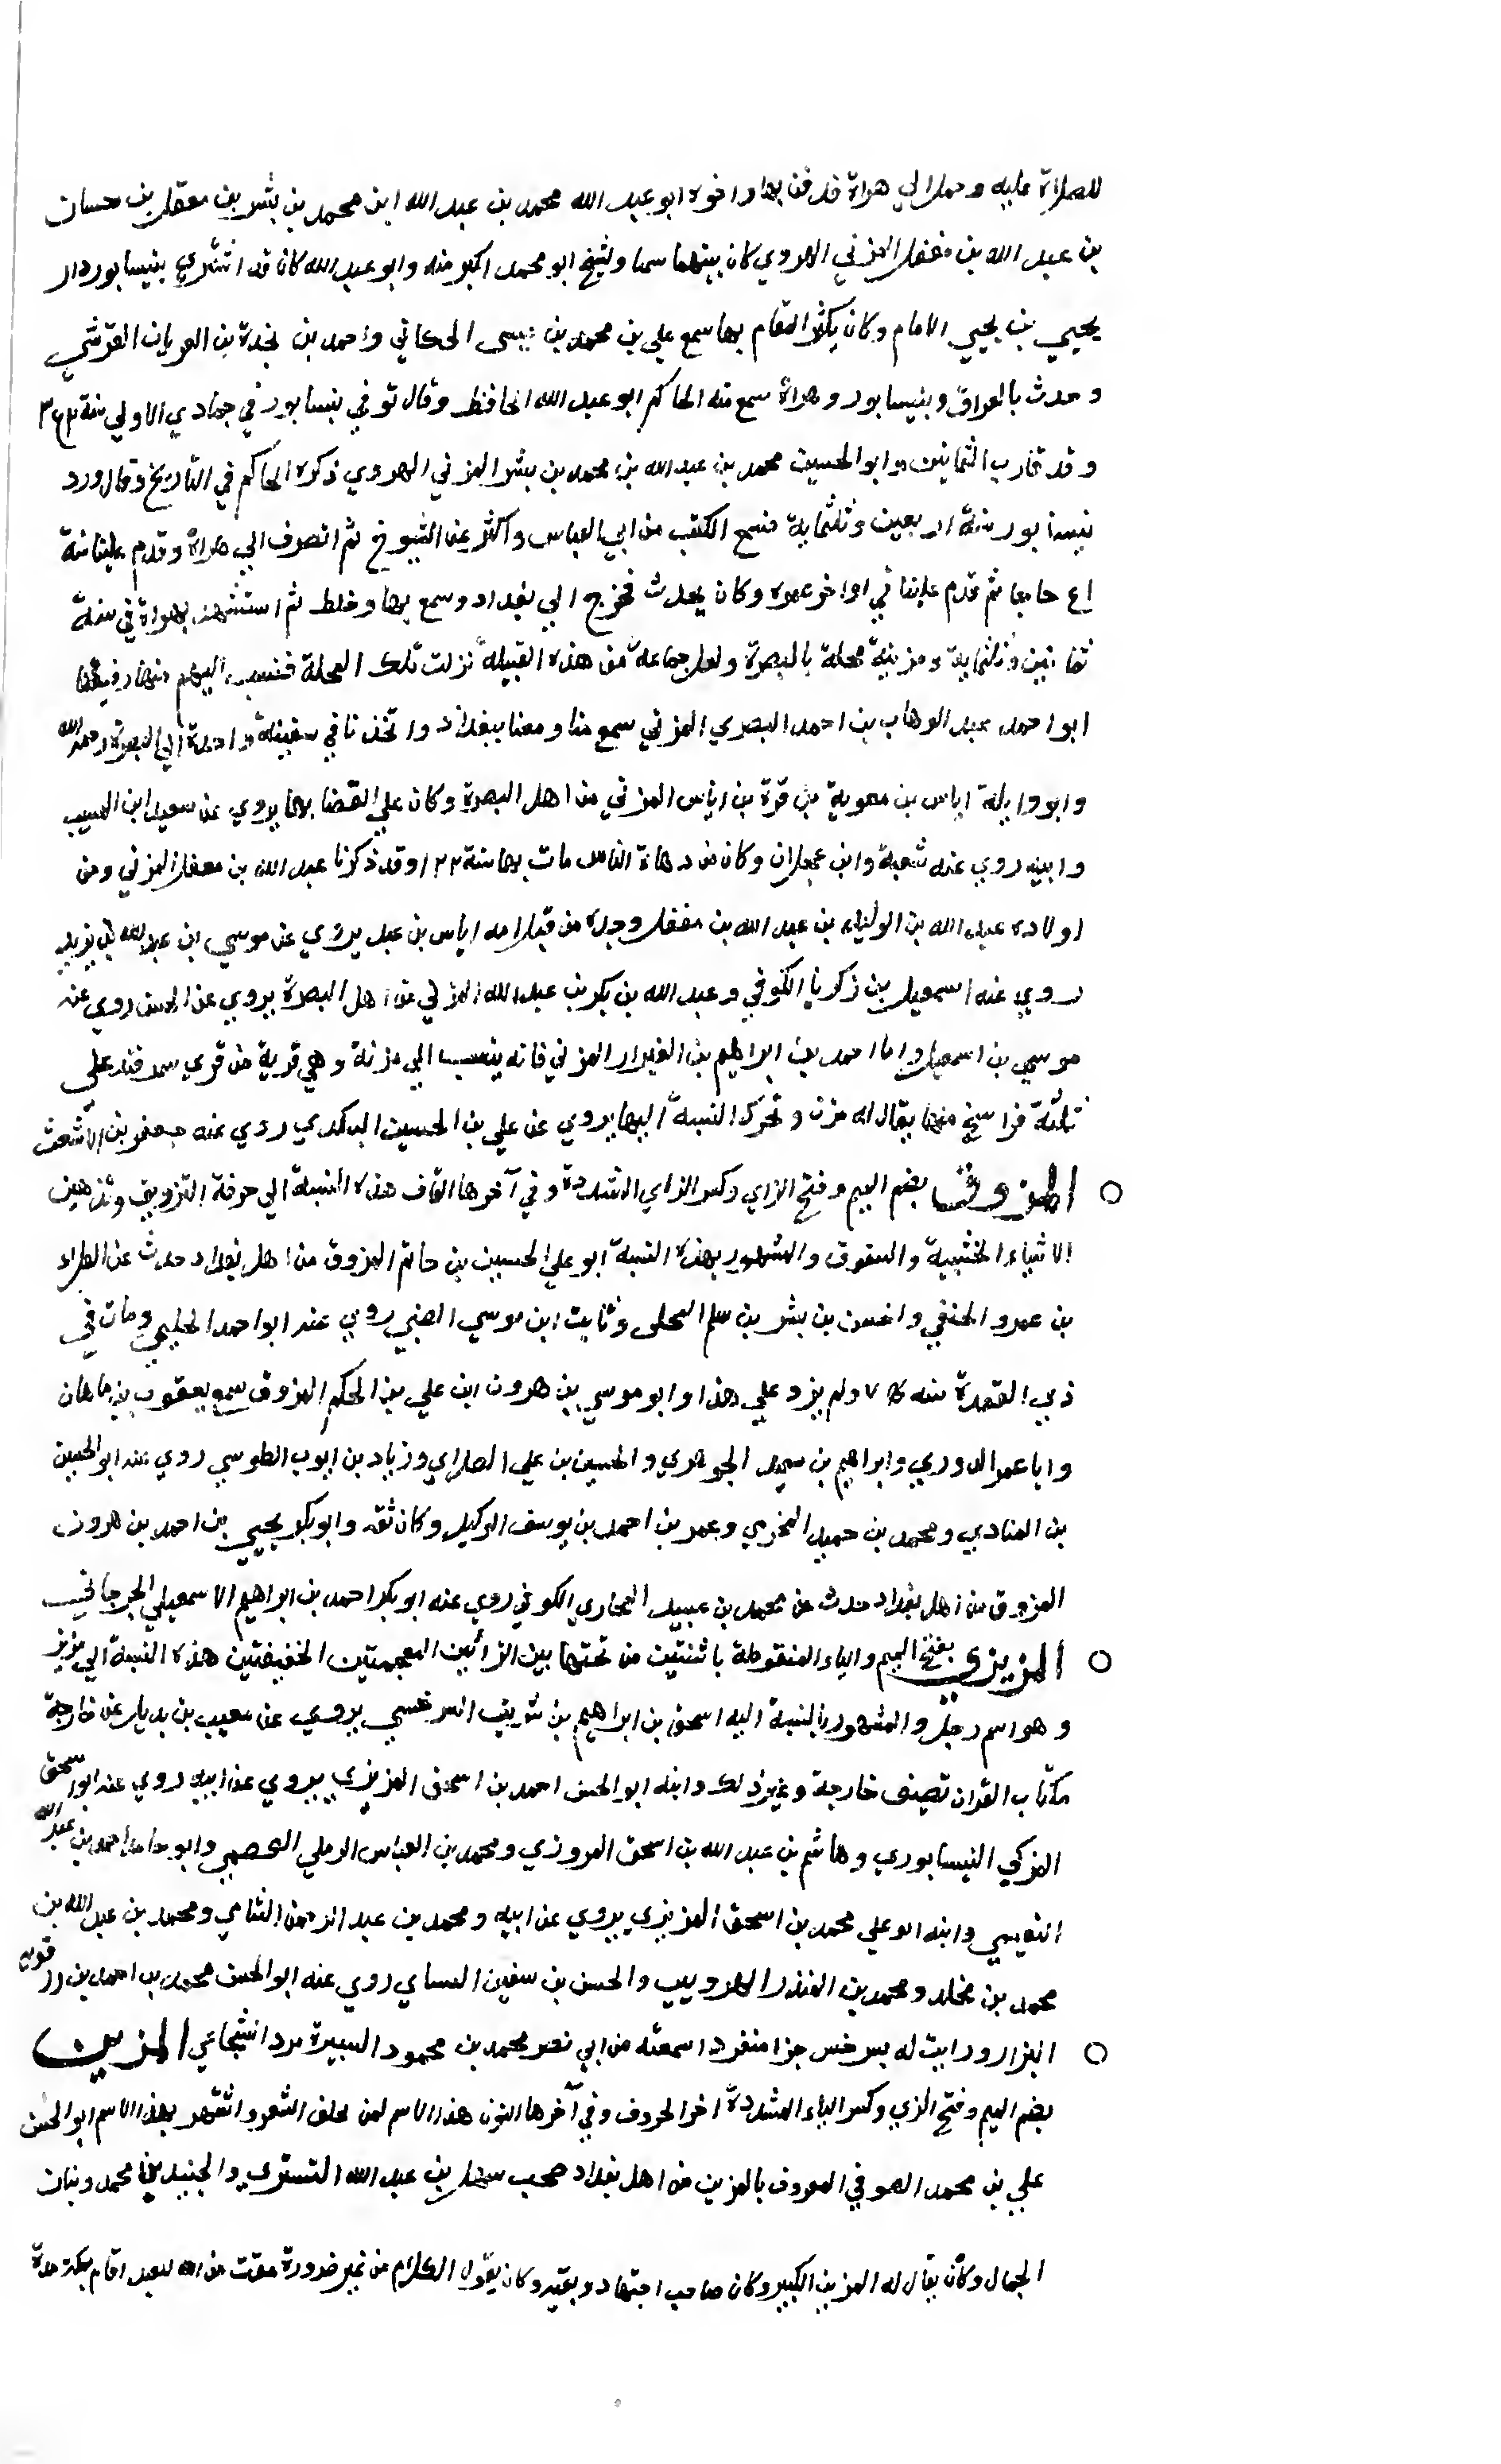 للصلاة عليه وحمل الي هراة فدفن بها واخوه ابو عبد الله محمد بن عبد الله ابن محمد بن بشر بن معقل بن حسان
بن عبد الله بن مغفل المزني الهروي كان بينهما سما وشيخ ابو محمد اكبر منه وابو عبد الله كان قد اشتري بنيسابور دار
يحيي بن يحيي الامام وكان يكثر المقام بها سمع علي بن محمد بن عيسى الحكاني واحمد بن نجدة بن العريان القرشي
وحدث بالعراق وبنيسابور وهراة سمع منه الحاكم ابو عبد الله الحافظ وقال توفي بنيسابور في جمادي الاولي سنة
وقد قارب الثمانين وابو الحسين محمد بن عبد الله بن محمد بن بشر المزني الهروي ذكره الحاكم في التاريخ وقال ورد
نيسابور سنة اربعين وثلثماية فسمع الكتب من ابي العباس واكثر عن الشيوخ ثم انصرف الي هراة وقدم علينا سنة
حاجا ثم قدم علينا في اواخر عمره وكان يحدث فخرج الي بغداد وسمع بها وخلط ثم استشهد بهراة في سنة
ثمانين وثلثماية ومزينة محلة بالبصرة ولعل جماعة من هذه القبيلة نزلت تلك المحلة فنسب اليهم منها رفيقنا
ابو احمد عبد الوهاب بن احمد البصري المزني سمع منا ومعنا ببغداد واتخذنا في سفينة واحدة الي البصرة رحمه الله
وابو وايلة اياس بن معوية بن قرة بن اياس المزني من اهل البصرة وكان علي القضا بها يروي عن سعيد ابن المسيب
وابيه روي عنه شعبة وابن عجلان وكان من دهاة الناس مات بها سنة ١٢٢ وقد ذكرنا عبد الله بن مغفل المزني ومن
اولاده عبد الله بن الوليد بن عبد الله بن مغفل وجده من قبل امه اياس بن عبد يروي عن موسي بن عبد الله بن يزيد
روي عنه اسمعيل بن زكريا الكوفي وعبد الله بن بكر بن عبد الله المزني من اهل البصرة يروي عن الحسن روي عنه
موسي بن اسمعيل واما احمد بن ابراهيم بن العيزار المزني فانه ينسب الي مزنة وهي قرية من قري سمرقند علي
ثلثة فراسخ منها يقال له مزن وتحرك النسبة اليها يروي عن علي بن الحسين البيكندي روي عنه جعفر بن الاشعث
○ المزوق بضم الميم وفتح الزاي وكسر الزاي المشددة وفي آخرها القاف هذه النسبة الي حرفة التزويق وتذهيب
الاشياء الخشبية والسقوف والمشهور بهذه النسبة ابو علي الحسين بن حاتم المزوق من اهل بغداد حدث عن العلاء
بن عمرو الحنفي والحسن بن بشر بن سلم البجلي وثابت ابن موسي الضبي روي عنه ابو احمد الجلبي ومات في
ذي القعدة سنه ولم يزد علي هذا وابو موسي بن هرون ابن علي بن الحكم المزوق سمع يعقوب بن ماهان
وابا عمر الدوري وابراهيم بن سعيد الجوهري والحسين بن علي الصداي وزياد بن ايوب الطوسي روي عنه ابو الحسين
بن المنادي ومحمد بن حميد المخرمي وعمر بن احمد بن يوسف الوكيل وكان ثقه وابو بكر يحيي بن احمد بن هرون
المزوق من اهل بغداد حدث عن محمد بن عبيد المحاربي الكوفي روي عنه ابو بكر احمد بن ابراهيم الاسمعيلي الجرجاني
○ المزيزي بفتح الميم والياء المنقوطة باثنتين من تحتها بين الزائين المعجمتين الخفيفتين هذه النسبة الي مزيز
وهو اسم رجل والمشهور بالنسبة اليه اسحق بن ابراهيم بن السرخسي يروي عن عن خارجة
كتاب القران تصنيف خارجة وغير ذلك وابنه ابو الحسن احمد بن اسحق المزيزي يروي عن ابيه روي عنه ابو اسحق
المزكي النيسابوري وهاشم بن عبد الله بن اسحق المروزي ومحمد بن العباس الرملي العصمي وابو حامد احمد بن عبد الله
النعيمي وابنه ابو علي محمد بن اسحق المزيزي يروي عن ابيه ومحمد بن عبد الرحمن الشامي ومحمد بن عبد الله بن
محمد بن مخلد ومحمد بن المنذر الهرويين والحسن بن سفين النساي روي عنه ابو الحسن محمد بن احمد بن رزقويه
○ البزار ورايت له بسرخس جزا منفردا سمعته من ابي نصر محمد بن محمود الشجاعي المزين
بضم الميم وفتح الزاي وكسر الياء المشددة اخر الحروف وفي آخرها النون هذا الاسم لمن يحلق الشعر واشتهر بهذا الاسم ابو الحسن
علي بن محمد الصوفي المعروف بالمزين من اهل بغداد صحب سهل بن عبد الله التستري والجنيد بن محمد وبنان
الجمال وكان يقال له المزين الكبير وكان صاحب اجتهاد وتعبد وكان يقول الكلام من غير ضرورة مقت من الله للعبد اقام بمكة مدة